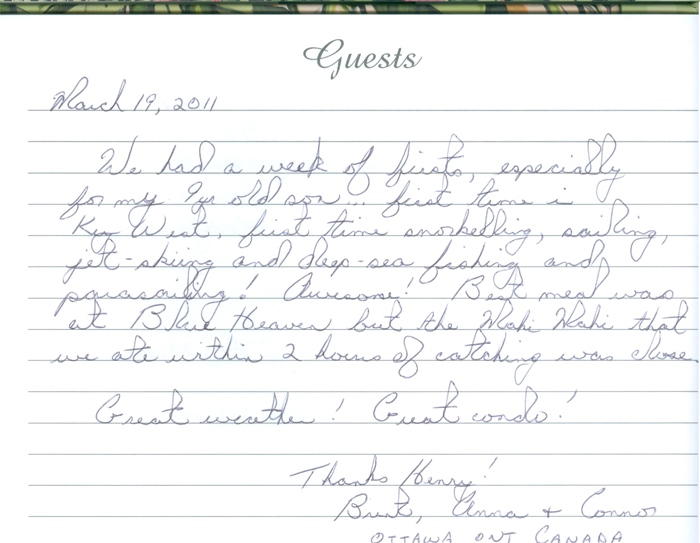 Guests
March 19, 2011
We had a week of firsts, especially
for my 9yr old son... first time i
Key West, first time snorkelling, sailing,
jet-skiing and deep-sea fishing and
parasailing! Awesome! Best meal was
at Blue Heaven but the Mahi Mahi that
we ate within 2 hours of catching was close.
Great weather! Great condo!
Thanks Henry!
Brent, Anna + Connor
OTTAWA ONT CANADA